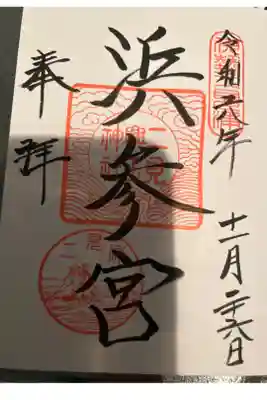 令和六年
十一月二十六日
浜参宮
二見
興玉
神社
奉拝